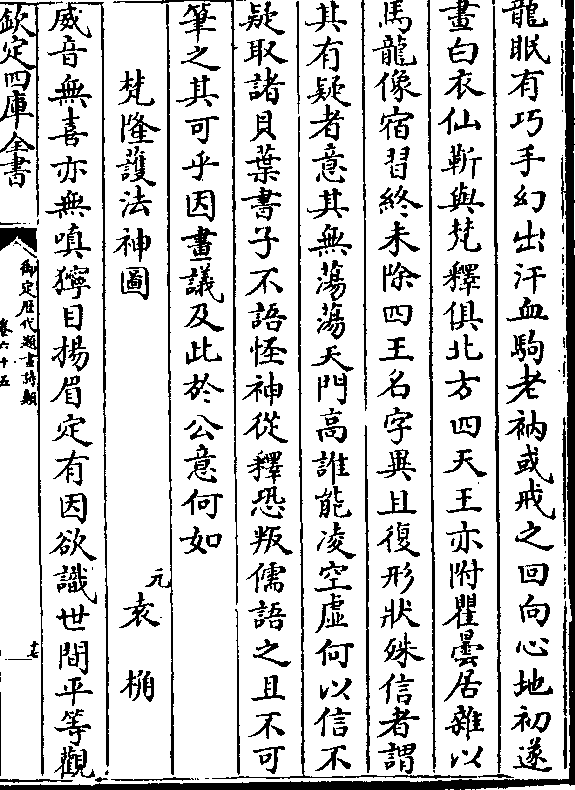 龍眠有巧手幻出汗血駒老衲或戒之回向心地初遂
畫白衣仙斬與梵釋俱北方四天王亦附瞿曇居雜以
馬龍像宿習終未除四王名字異且復形狀殊信者謂
其有疑者意其無蕩蕩天門高誰能凌空虛何以信不
疑取諸貝葉書子不語怪神從釋恐叛儒語之且不可
筆之其可乎因畫議及此於公意何如
梵隆護法神圖
元袁桷
威音無喜亦無嗔獰目揚眉定有因欲識世間平等觀
欽定四庫全書
御定歴代題畫詩類
卷六十五